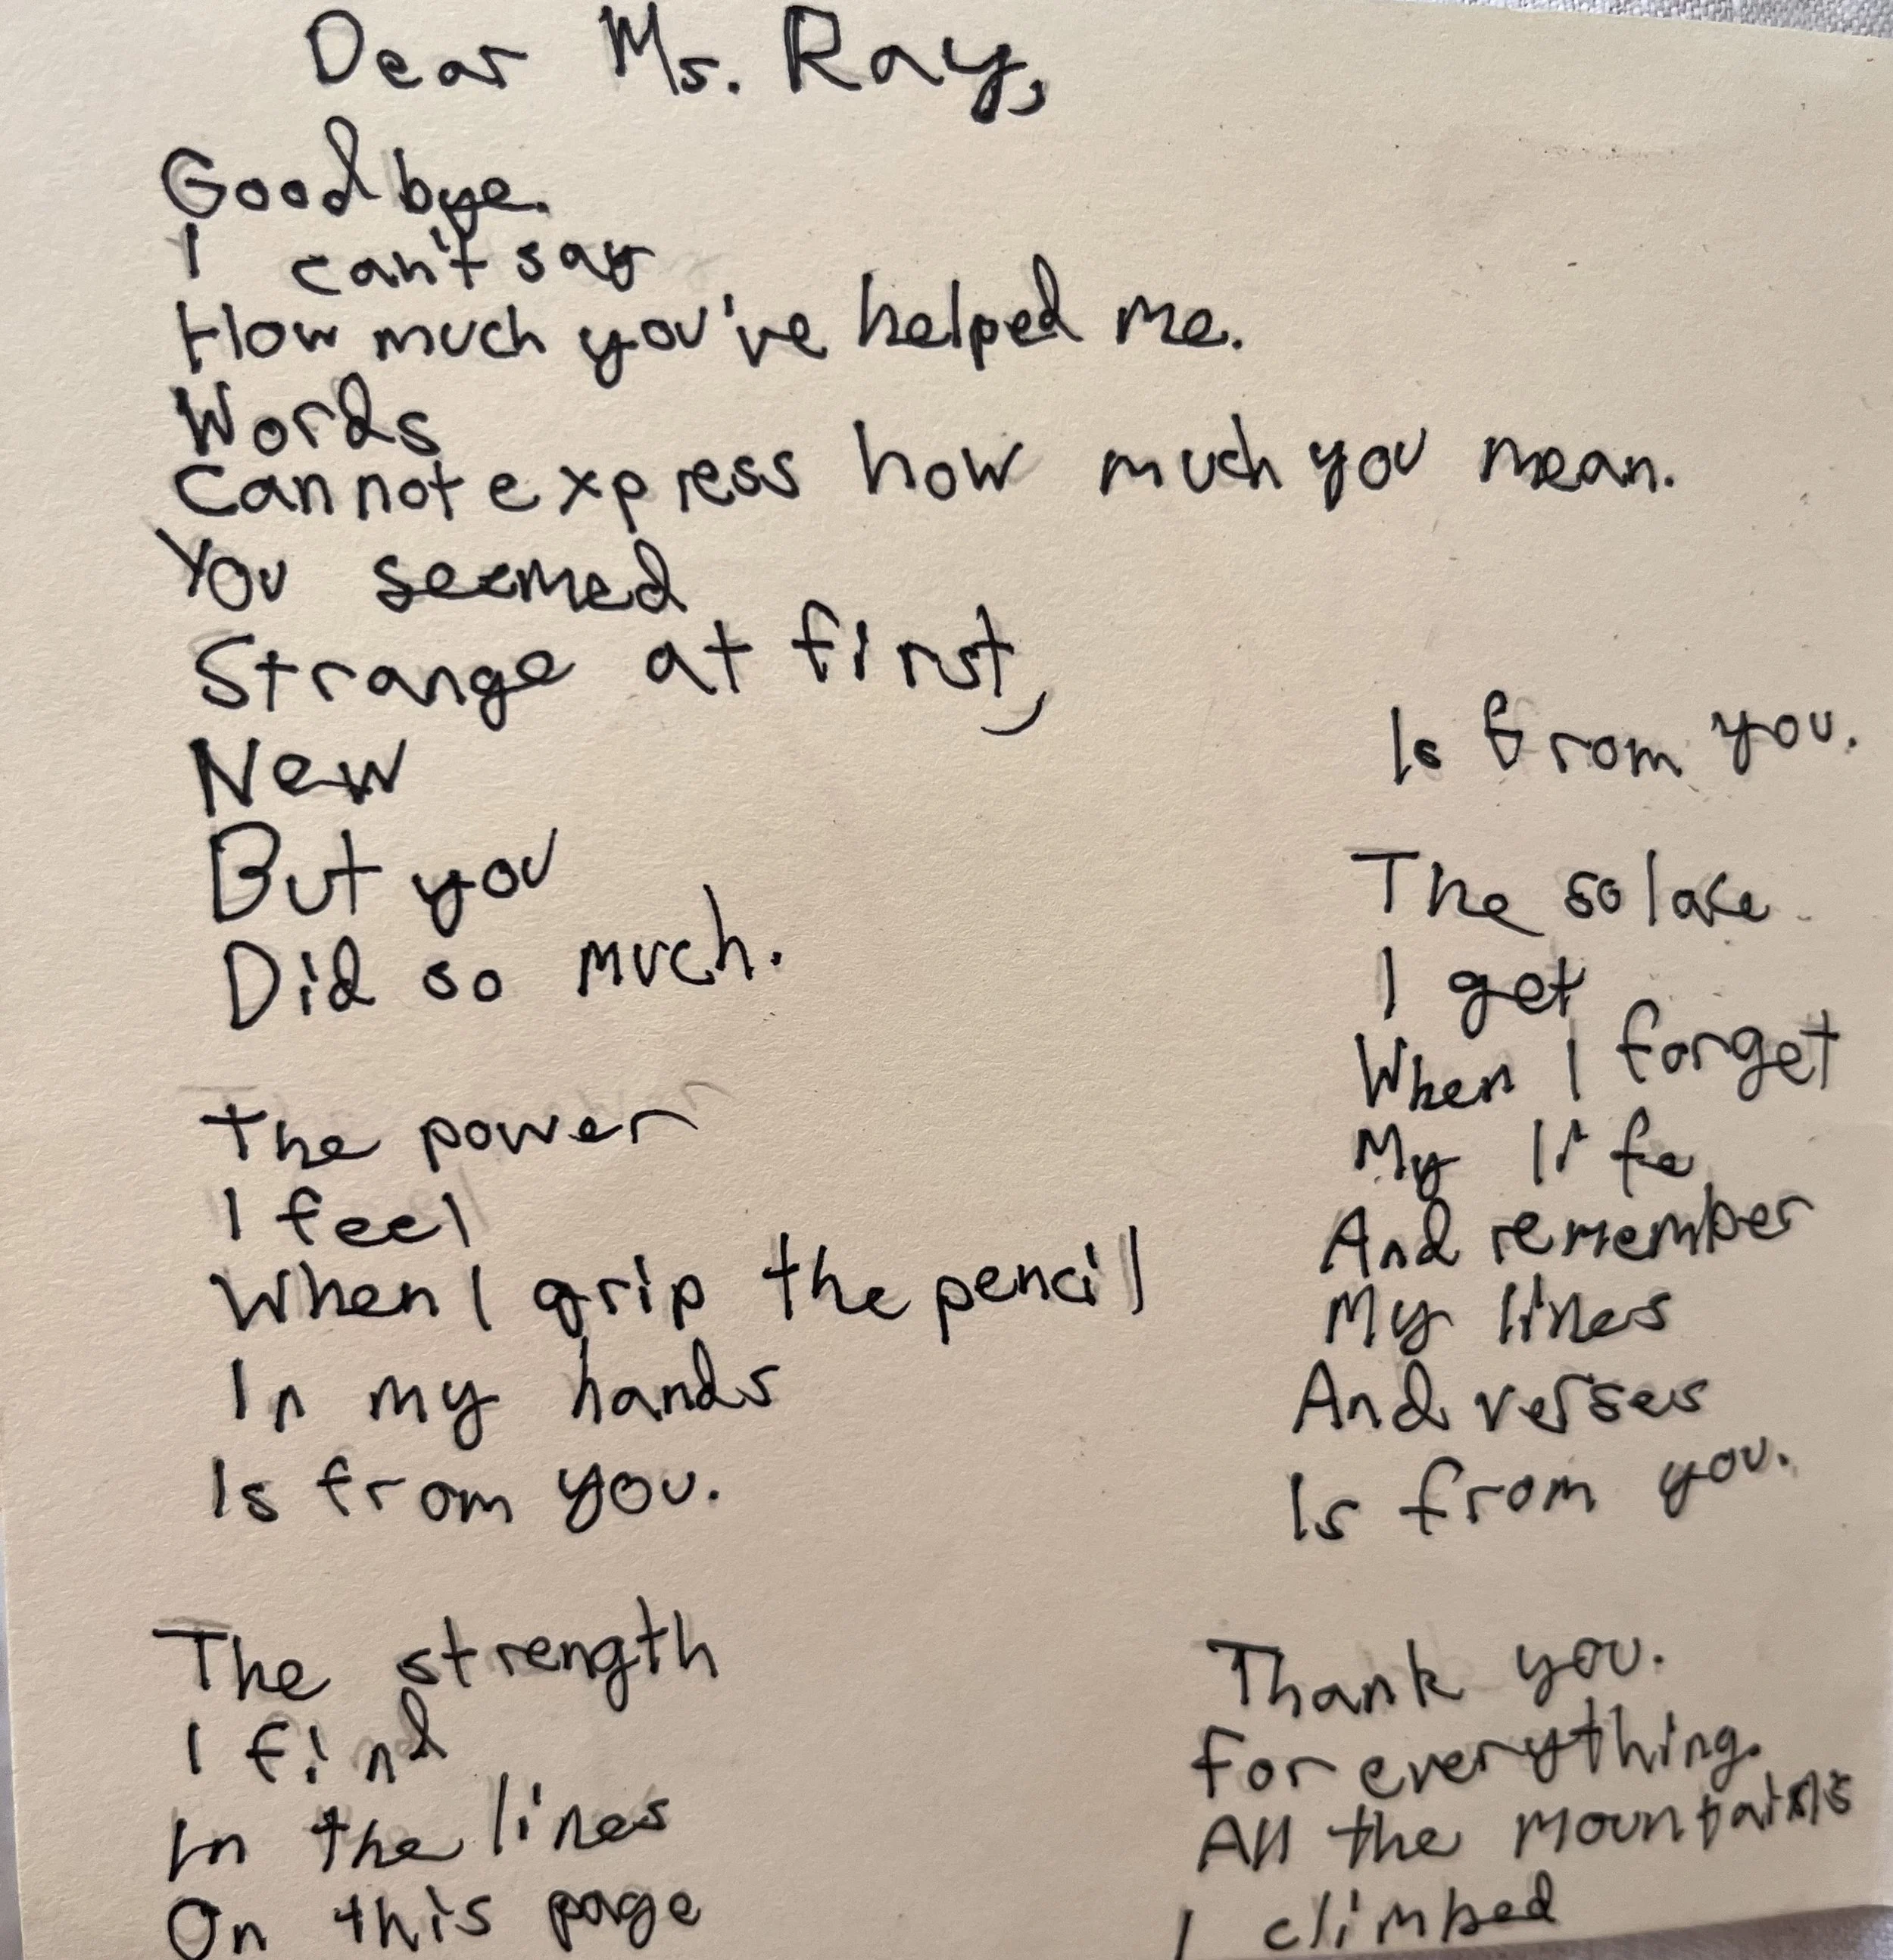 Dear Ms. Ray,
Goodbye.
I can't say
How much you've helped me.
Words
Cannot express how much you mean.
You seemed
Strange at first,
New
But you
Did so much.
The power
I feel
When I grip the pencil
In my hands
Is from you.
The strength
I find
In the lines
On this page
Is from you.
The solace
I get
When I forget
My life
And remember
My lines
And verses
Is from you.
Thank you.
For everything.
All the mountains
I climbed